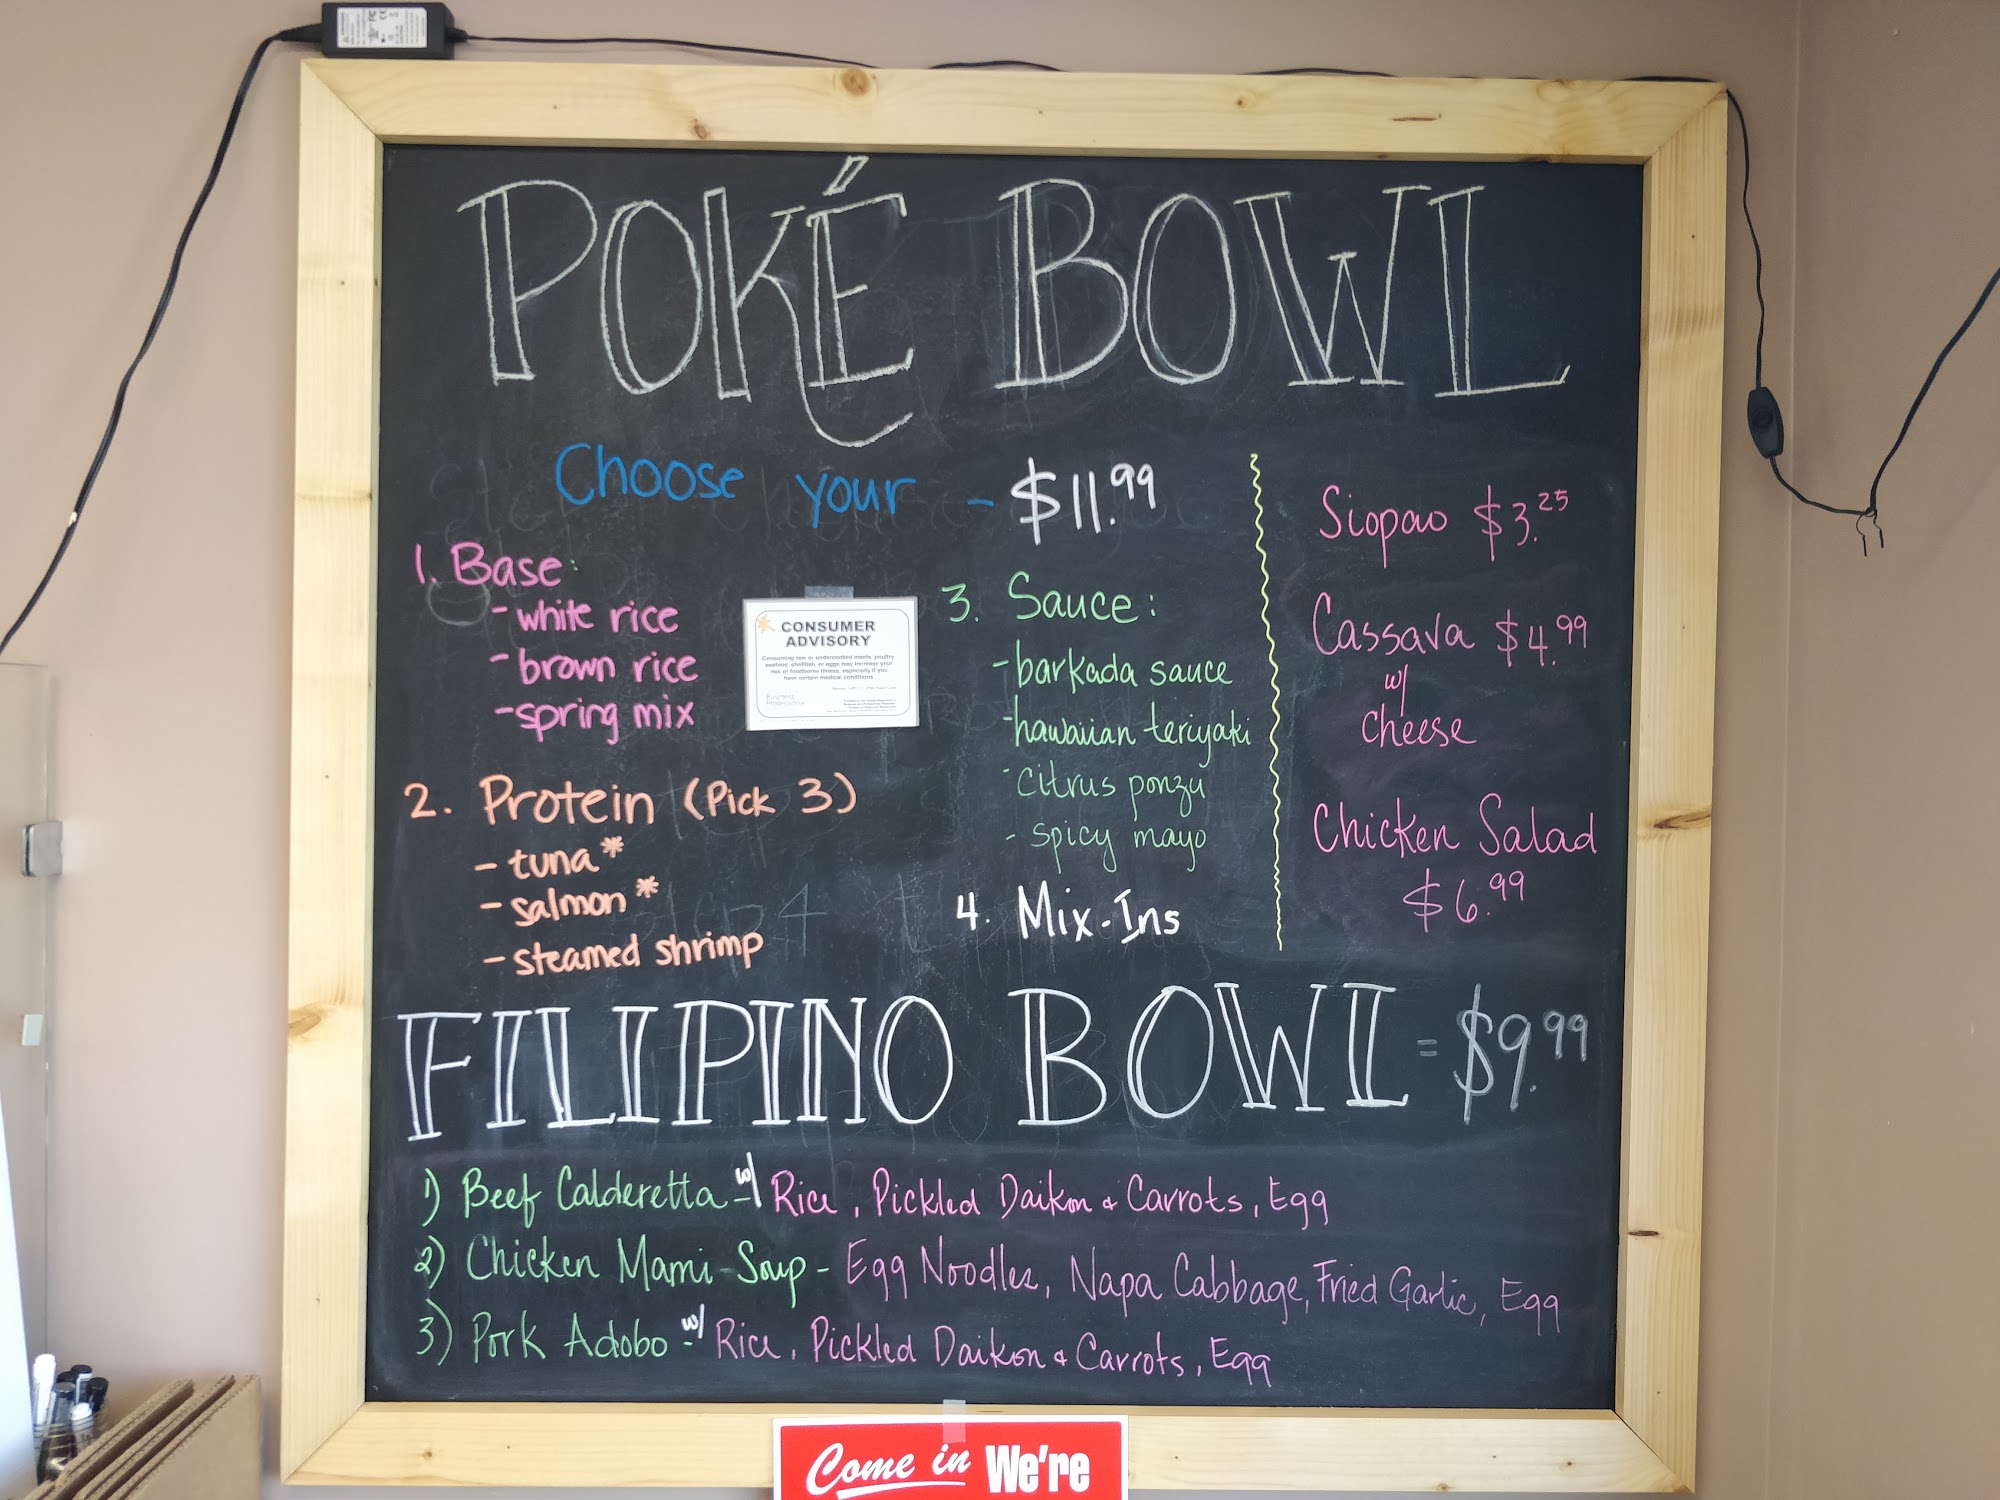 POKÉ BOWL
Choose your - $11.99
1. Base:
- white rice
- brown rice
- spring mix
CONSUMER
ADVISORY
Consuming raw or undercooked meats, poultry
seafood, shellfish, or eggs may increase your
risk of foodborne illness, especially if you
have certain medical conditions
2. Protein (Pick 3)
- tuna*
- salmon*
- steamed shrimp
3. Sauce:
- barkada sauce
- hawaiian teriyaki
- citrus ponzu
- spicy mayo
4. Mix-Ins
Siopao $3.25
Cassava $4.99
w/
Cheese
Chicken Salad
$6.99
FILIPINO BOWL = $9.99
1) Beef Calderetta - w/ Rice, Pickled Daikon & Carrots, Egg
2) Chicken Mami Soup - Egg Noodles, Napa Cabbage, Fried Garlic, Egg
3) Pork Adobo - w/ Rice, Pickled Daikon & Carrots, Egg
Come in We're